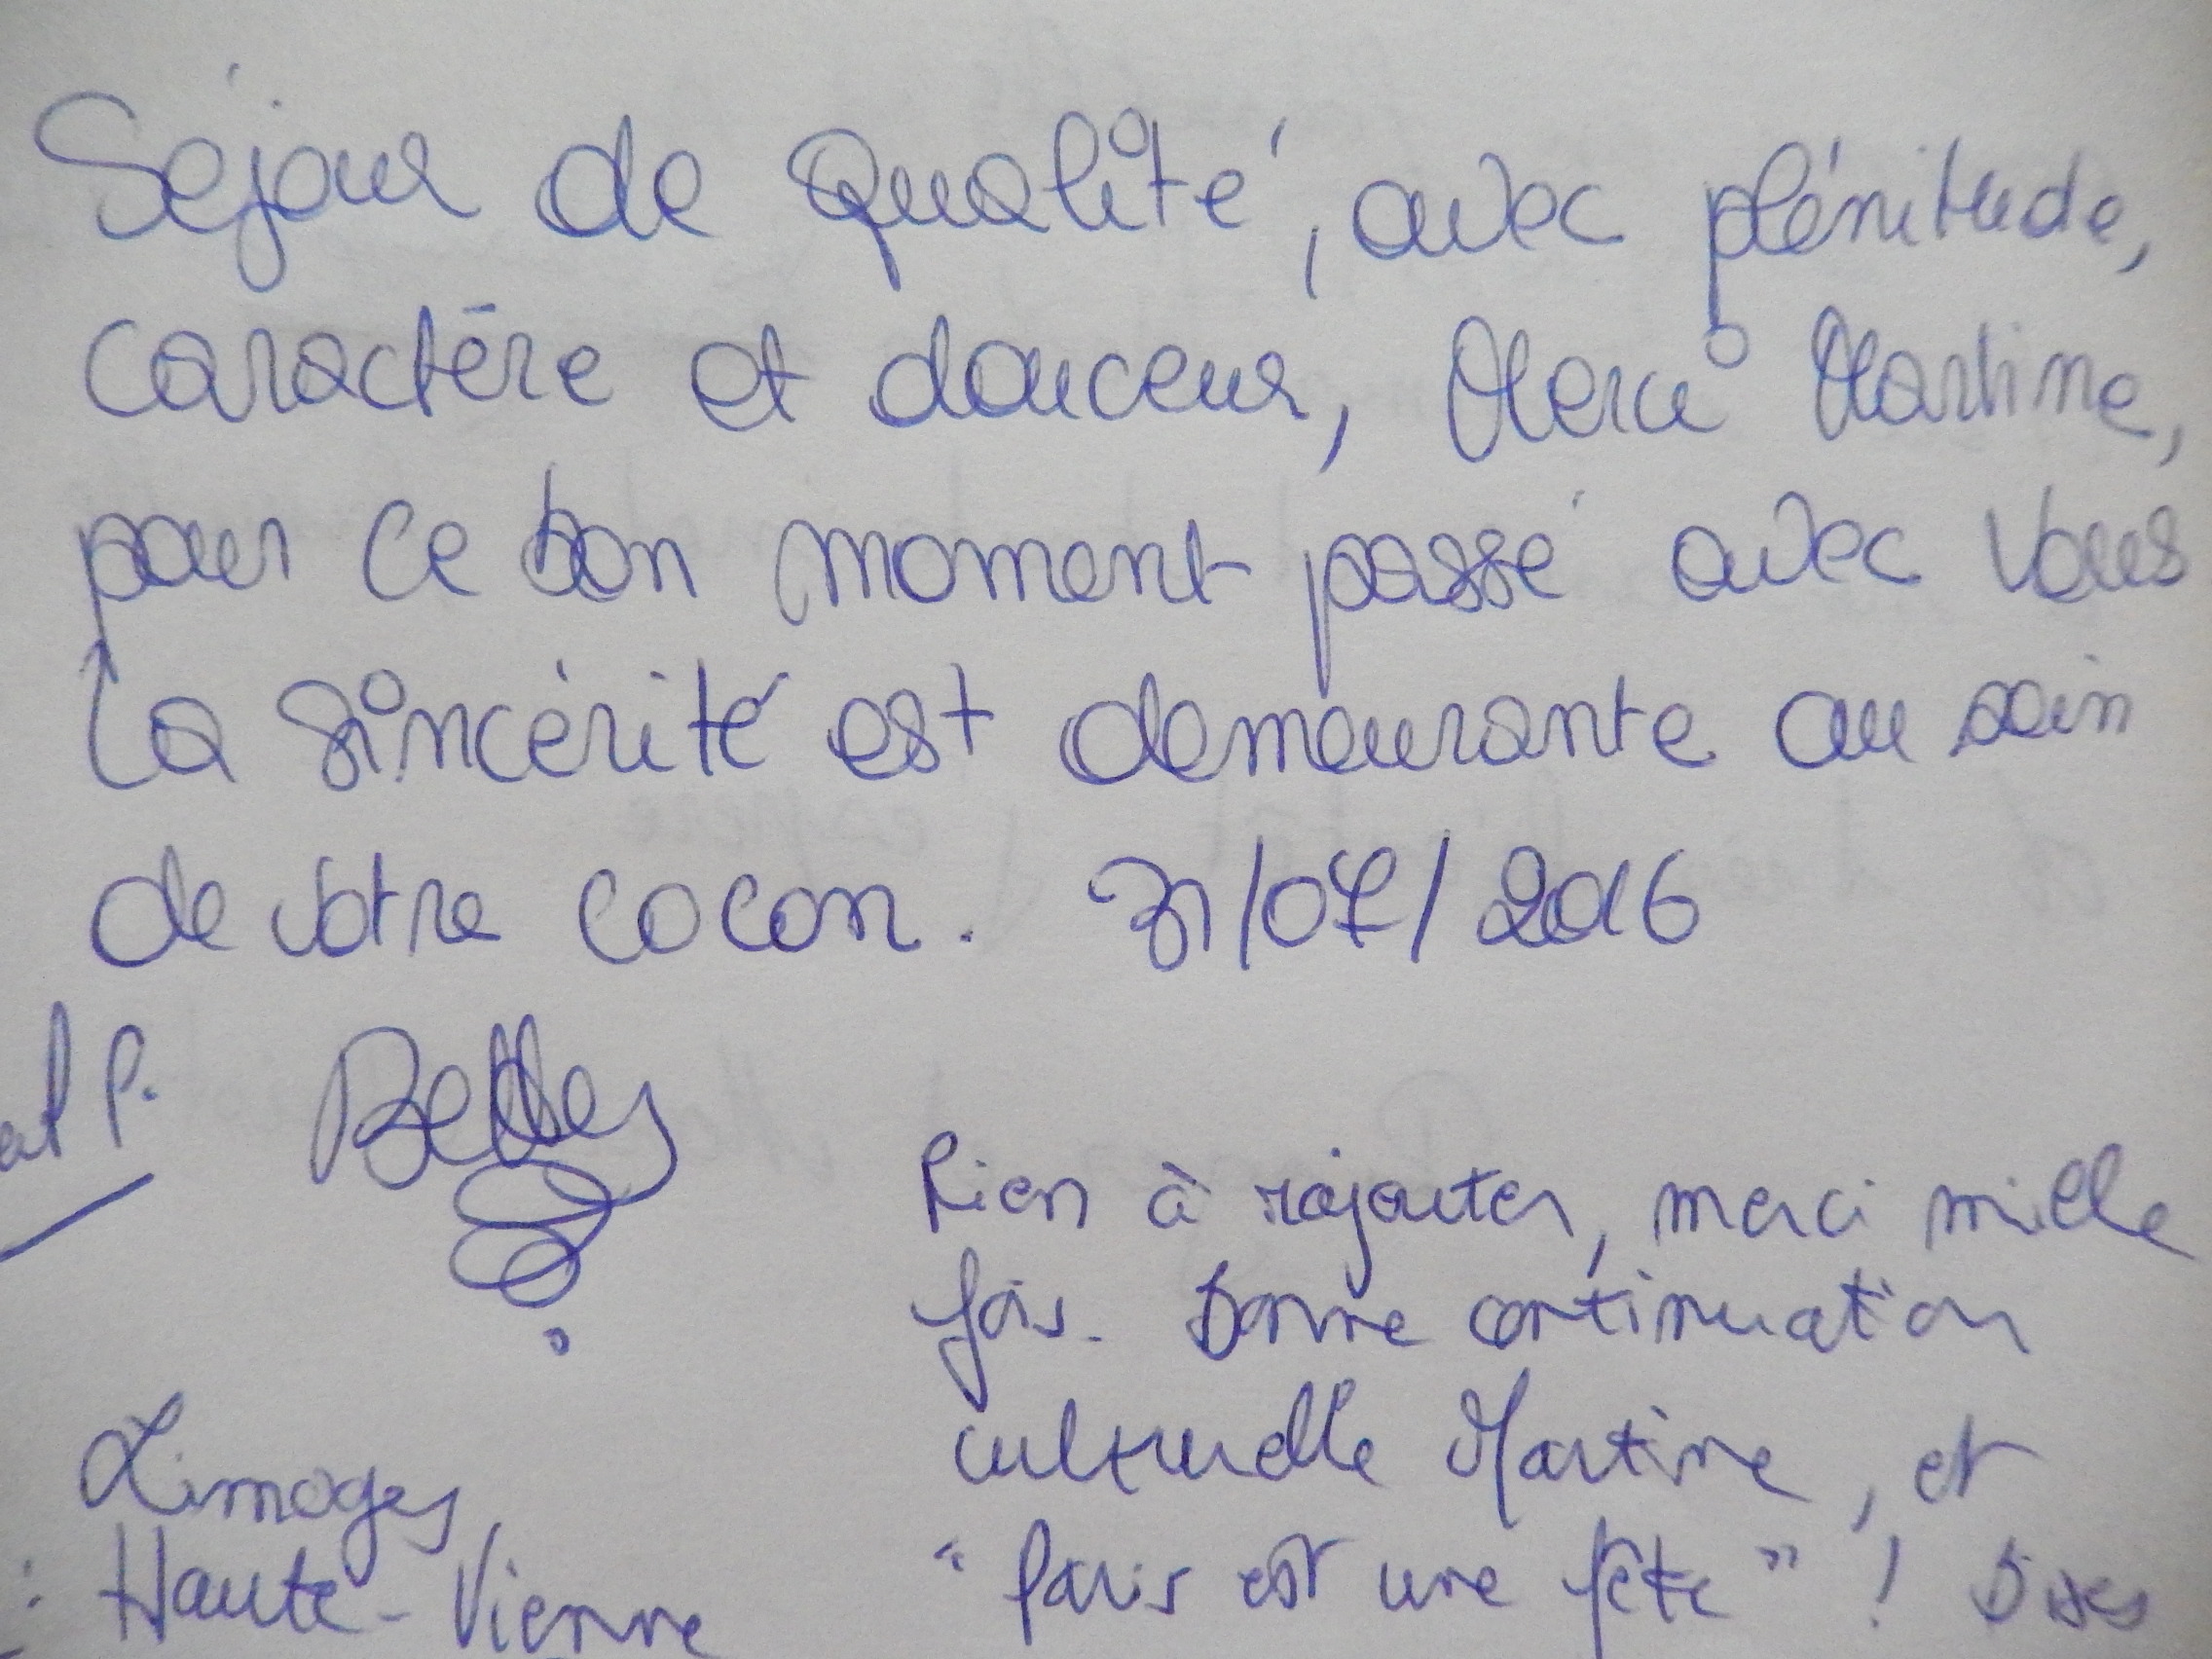 Séjour de Qualité, avec plénitude,
caractère et douceur, Merci Martine,
pour ce bon moment passé avec vous
La sincérité est demeurante au sein
de votre cocon. 31/07/2016
P.
Rien à rajouter, merci mille
fois. Bonne continuation
culturelle Martine, et
"Paris est une fête" ! Bises
Limoges
: Haute-Vienne